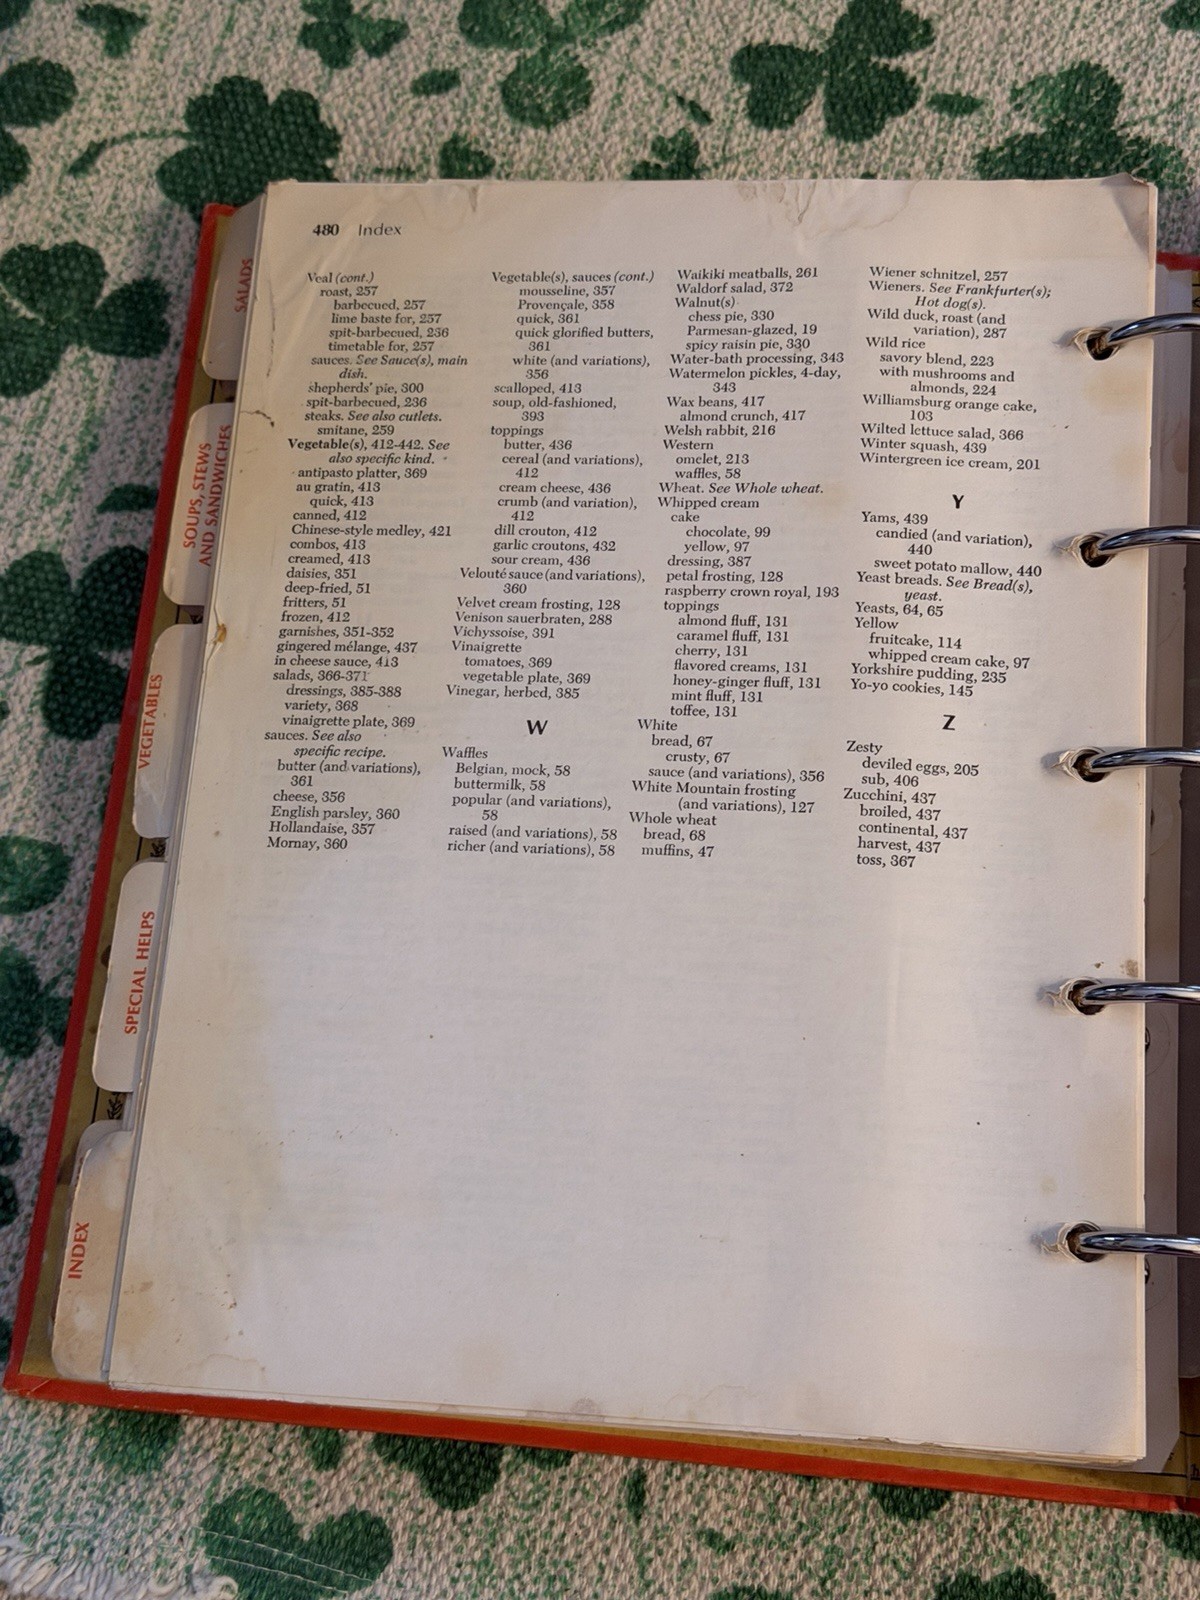 480 Index
Veal (cont.)
roast, 257
barbecued, 257
lime baste for, 257
spit-barbecued, 236
timetable for, 257
sauces. See Sauce(s), main
dish.
shepherds' pie, 300
spit-barbecued, 236
steaks. See also cutlets.
smitane, 259
Vegetable(s), 412-442. See
also specific kind.
antipasto platter, 369
au gratin, 413
quick, 413
canned, 412
Chinese-style medley, 421
combos, 413
creamed, 413
daisies, 351
deep-fried, 51
fritters, 51
frozen, 412
garnishes, 351-352
gingered mélange, 437
in cheese sauce, 413
salads, 366-371
dressings, 385-388
variety, 368
vinaigrette plate, 369
sauces. See also
specific recipe.
butter (and variations),
361
cheese, 356
English parsley, 360
Hollandaise, 357
Mornay, 360
Vegetable(s), sauces (cont.)
mousseline, 357
Provençale, 358
quick, 361
quick glorified butters,
361
white (and variations),
356
scalloped, 413
soup, old-fashioned,
393
toppings
butter, 436
cereal (and variations),
412
cream cheese, 436
crumb (and variation),
412
dill crouton, 412
garlic croutons, 432
sour cream, 436
Velouté sauce (and variations),
360
Velvet cream frosting, 128
Venison sauerbraten, 288
Vichyssoise, 391
Vinaigrette
tomatoes, 369
vegetable plate, 369
Vinegar, herbed, 385
W
Waffles
Belgian, mock, 58
buttermilk, 58
popular (and variations),
58
raised (and variations), 58
richer (and variations), 58
Waikiki meatballs, 261
Waldorf salad, 372
Walnut(s)
chess pie, 330
Parmesan-glazed, 19
spicy raisin pie, 330
Water-bath processing, 343
Watermelon pickles, 4-day,
343
Wax beans, 417
almond crunch, 417
Welsh rabbit, 216
Western
omelet, 213
waffles, 58
Wheat. See Whole wheat.
Whipped cream
cake
chocolate, 99
yellow, 97
dressing, 387
petal frosting, 128
raspberry crown royal, 193
toppings
almond fluff, 131
caramel fluff, 131
cherry, 131
flavored creams, 131
honey-ginger fluff, 131
mint fluff, 131
toffee, 131
White
bread, 67
crusty, 67
sauce (and variations), 356
White Mountain frosting
(and variations), 127
Whole wheat
bread, 68
muffins, 47
Wiener schnitzel, 257
Wieners. See Frankfurter(s);
Hot dog(s).
Wild duck, roast (and
variation), 287
Wild rice
savory blend, 223
with mushrooms and
almonds, 224
Williamsburg orange cake,
103
Wilted lettuce salad, 366
Winter squash, 439
Wintergreen ice cream, 201
Y
Yams, 439
candied (and variation),
440
sweet potato mallow, 440
Yeast breads. See Bread(s),
yeast.
Yeasts, 64, 65
Yellow
fruitcake, 114
whipped cream cake, 97
Yorkshire pudding, 235
Yo-yo cookies, 145
Z
Zesty
deviled eggs, 205
sub, 406
Zucchini, 437
broiled, 437
continental, 437
harvest, 437
toss, 367
SALADS
SOUPS, STEWS
AND SANDWICHES
VEGETABLES
SPECIAL HELPS
INDEX